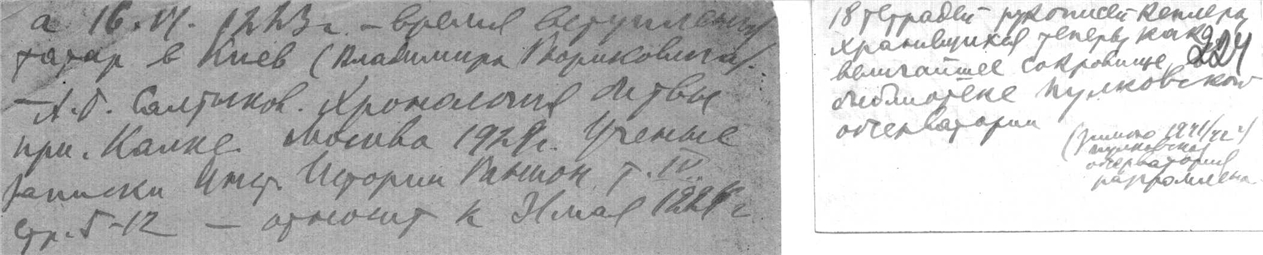 а 16.VI. 1223 г. – время вступления
татар в Киев (Владимира Рюриковича).
– А.Б. Салтыков. Хронология битвы
при. Калке Москва 1929 г. Ученые
записки Инст. Истории Раньон. т. IV.
стр. 5-12 – относит к 31 мая 1223 г.
18 тетрадей рукописей Кеплера
хранящихся теперь, как
224
величайшее сокровище
библиотеке Пулковской
обсерватории
(зимою 1941/42 г
пулковская
обсерватория
разгромлена